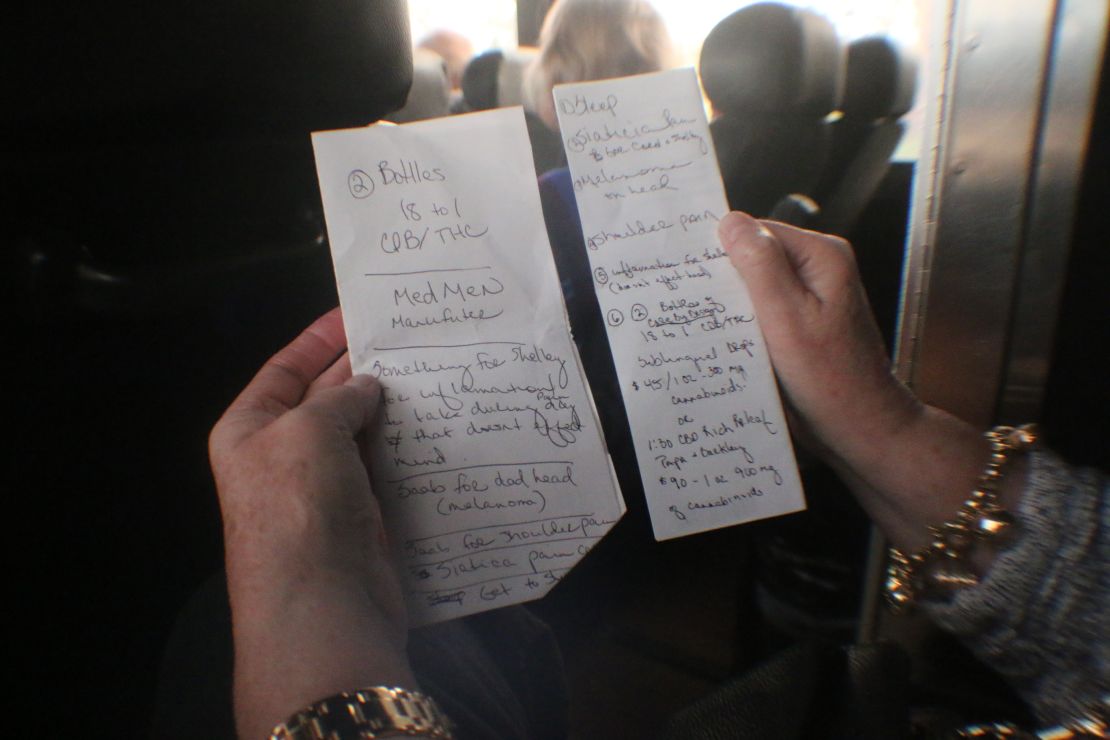 ② Bottles
18 to 1
CDB/THC
MedMen
Something for Shelley
for inflamation/
Pain
to take during day
that doesnt effect
mind.
Saab for dad head
(melanoma)
Saab for shoulder pain
Siatica pain
Get to
① Sleep
② Siatica Pain
for Coco + Shelley
③ Melanoma
on head
④ Shoulder pain
⑤ inflamation for Shelle
(doesn't effect head)
⑥ ② Bottles of
Care By Design
18 to 1 CDB/THC
Sublingual Drops
$45/1 oz - 300 mg
cannabinoids
or
1:30 CBD Rich Releaf
Papa + Barkley
$90 - 1 oz 900 mg
of cannabinoids